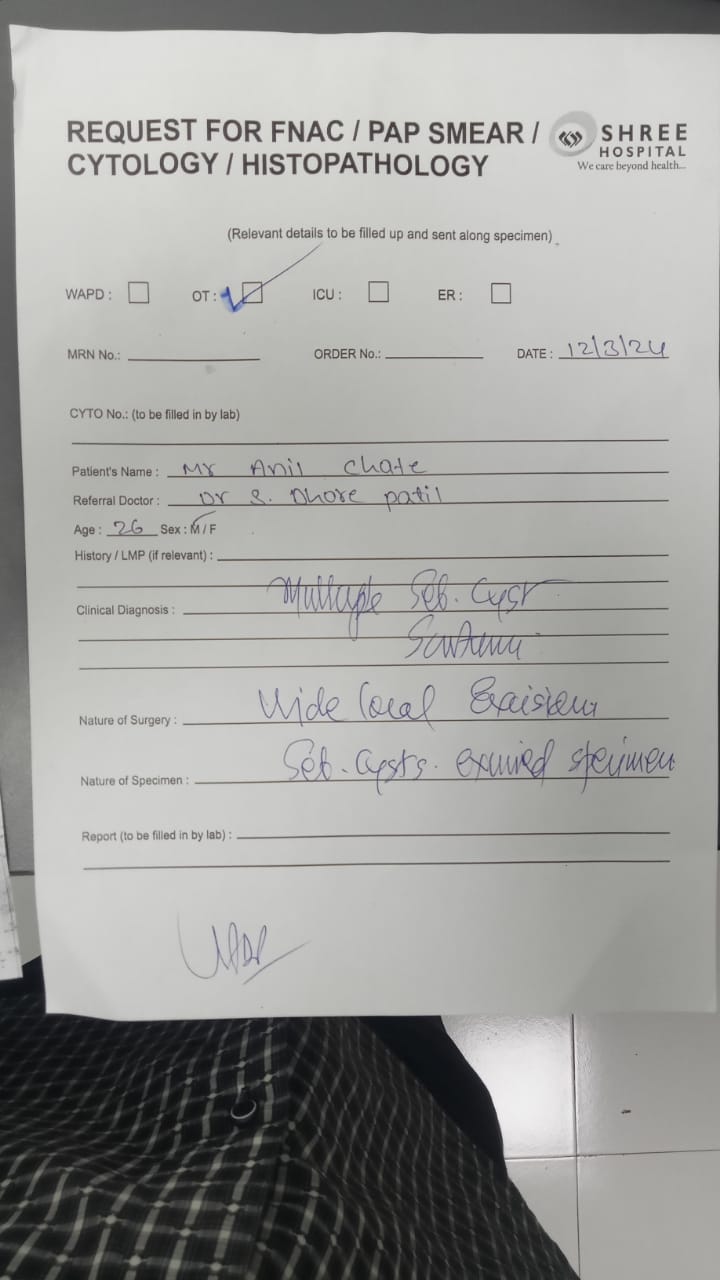 REQUEST FOR FNAC / PAP SMEAR /
CYTOLOGY / HISTOPATHOLOGY
SHREE
HOSPITAL
We care beyond health...
(Relevant details to be filled up and sent along specimen)
WAPD : OT : ICU : ER :
MRN No.: ORDER No.: DATE : 12/3/24
CYTO No.: (to be filled in by lab)
Patient's Name : Mr Anil Chate
Referral Doctor : Dr S. Dhore patil
Age : 26 Sex : M / F
History / LMP (if relevant) :
Clinical Diagnosis : Multiple Seb. Cyst
Nature of Surgery : Wide local Excision
Nature of Specimen : Seb. Cysts. excised specimen
Report (to be filled in by lab) :